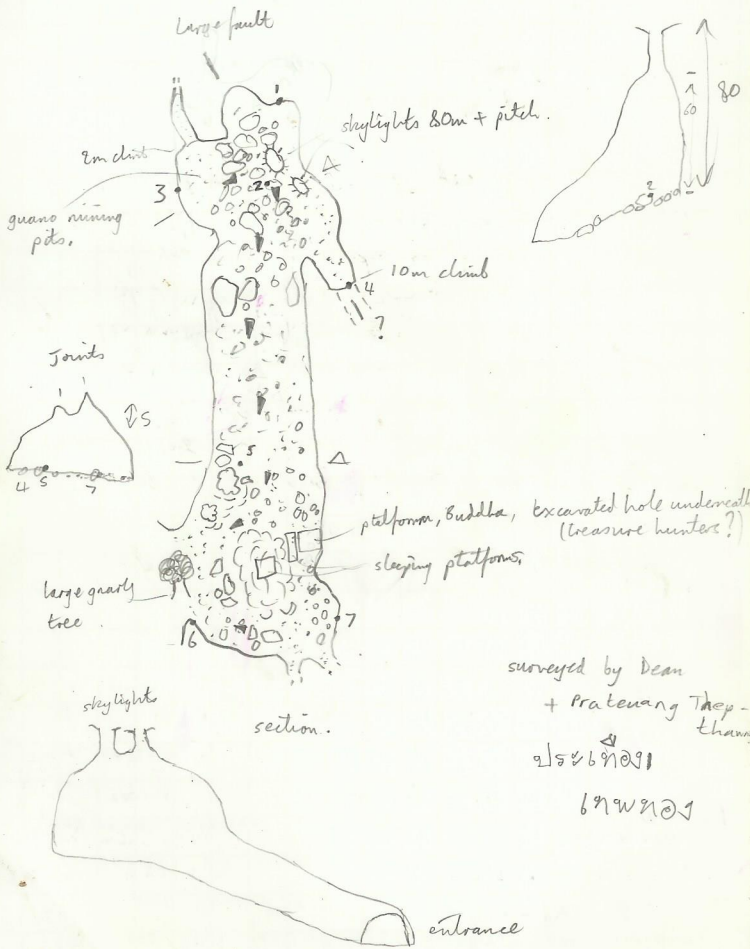 large fault
skylights 80m + pitch.
2m climb
3
guano mining
pits.
1
2
10m climb
4
?
2
60
80
Joints
5
4 5 7
5
platform, Buddha, excavated hole underneath
(treasure hunters?)
sleeping platforms.
large gnarly
tree
6
7
surveyed by Dean
+ Prateuang Thep-
thong
ประเทือง
เทพทอง
section.
skylights
entrance